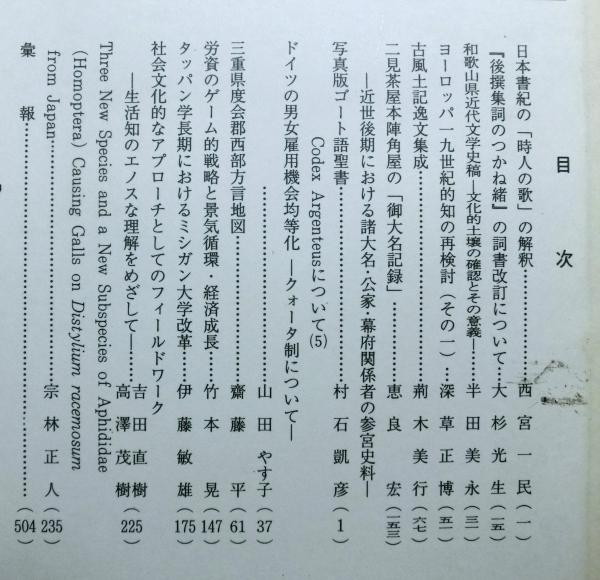 目次
日本書紀の「時人の歌」の解釈……西宮一民(一)
『後撰集詞のつかね緒』の詞書改訂について……大杉光生(一五)
和歌山県近代文学史稿―文化的土壌の確認とその意義―……半田美永(三一)
ヨーロッパ一九世紀的知の再検討(その一)……深草正博(五一)
古風土記逸文集成……荊木美行(六七)
二見茶屋本陣角屋の「御大名記録」
―近世後期における諸大名・公家・幕府関係者の参宮史料―……恵良宏(一五三)
写真版ゴート語聖書
Codex Argenteusについて(5)……村石凱彦(1)
ドイツの男女雇用機会均等化 ―クォータ制について―
……山田やす子(37)
三重県度会郡西部方言地図……齋藤平(61)
労資のゲーム的戦略と景気循環・経済成長……竹本晃(147)
タッパン学長期におけるミシガン大学改革……伊藤敏雄(175)
社会文化的なアプローチとしてのフィールドワーク
―生活知のエノスな理解をめざして―……吉田直樹
高澤茂樹(225)
Three New Species and a New Subspecies of Aphididae
(Homoptera) Causing Galls on Distylium racemosum
from Japan……宗林正人(235)
彙報……(504)